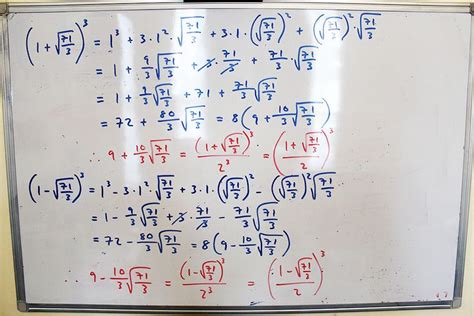 (1+√(71/3))³ = 1³ + 3·1²·√(71/3) + 3·1·(√(71/3))² + (√(71/3))²·√(71/3)
= 1 + 9/3 √(71/3) + 3·71/3 + 71/3·√(71/3)
= 1 + 9/3 √(71/3) + 71 + 71/3 √(71/3)
= 72 + 80/3 √(71/3) = 8(9 + 10/3 √(71/3))
9 + 10/3 √(71/3) = (1+√(71/3))³/2³ = ((1+√(71/3))/2)³
(1-√(71/3))³ = 1³ - 3·1²·√(71/3) + 3·1·(√(71/3))² - (√(71/3))²√(71/3)
= 1 - 9/3 √(71/3) + 3·71/3 - 71/3 √(71/3)
= 72 - 80/3 √(71/3) = 8(9 - 10/3 √(71/3))
9 - 10/3 √(71/3) = (1-√(71/3))³/2³ = ((1-√(71/3))/2)³